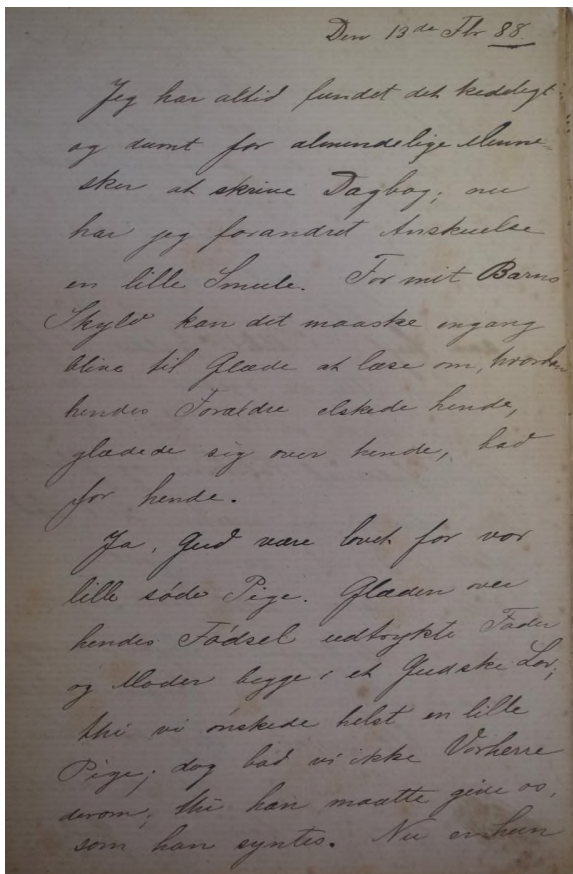 Den 13de Fbr 88.
Jeg har altid fundet det kedeligt
og dumt for almindelige Menne-
sker at skrive Dagbog; nu
har jeg forandret Anskuelse
en lille Smule. For mit Barns
Skyld kan det maaske engang
blive til Glæde at læse om, hvordan
hendes Forældre elskede hende,
glædede sig over hende, bad
for hende.
Ja, Gud være lovet for vor
lille søde Pige. Glæden over
hendes Fødsel udtrykte Fader
og Moder begge i et Gudske Lov;
thi vi ønskede helst en lille
Pige; dog bad vi ikke Vorherre
derom; thi han maatte give os,
som han syntes. Nu er hun